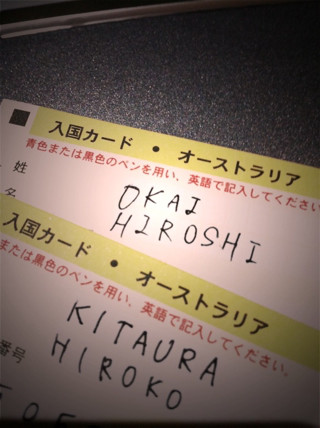 入国カード ● オーストラリア
青色または黒色のペンを用い、英語で記入してください
姓 OKAI
名 HIROSHI
入国カード ● オーストラリア
または黒色のペンを用い、英語で記入してください。
KITAURA
HIROKO
番号